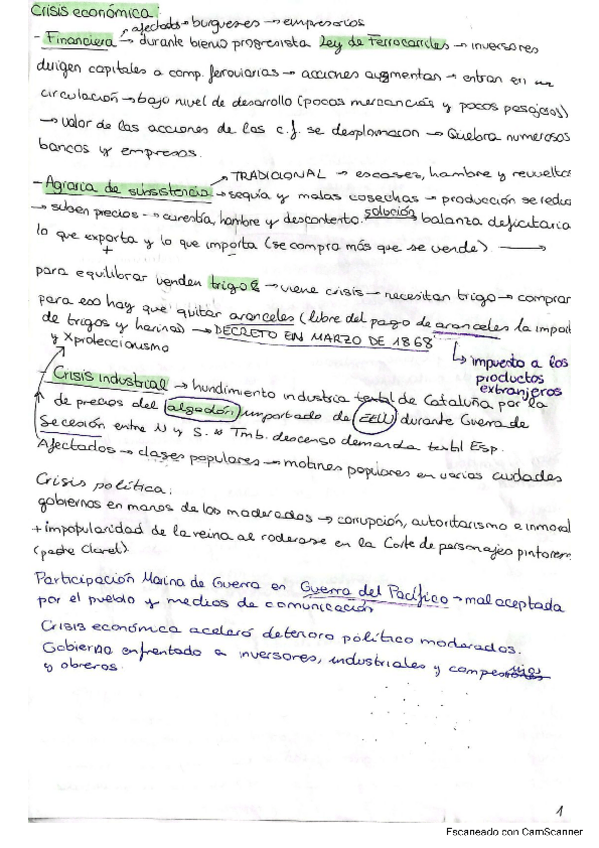 Crisis económica:
afectados → burgueses → empresarios
- Financiera → durante bienio progresista Ley de Ferrocarriles → inversores
dirigen capitales a comp. ferroviarias → acciones aumentan → entran en
circulación → bajo nivel de desarrollo (pocas mercancías y pocos pasajeros)
→ valor de las acciones de las c.f. se desplomaron → Quiebra numerosos
bancos y empresas.
TRADICIONAL → escasez, hambre y revueltas
- Agraria de subsistencia → sequía y malas cosechas → producción se reduce
→ suben precios → carestía, hambre y descontento. solución balanza deficitaria
lo que exporta y lo que importa (se compra más que se vende) →
+
para equilibrar venden trigo → viene crisis → necesitan trigo → comprar
para eso hay que quitar aranceles (libre del pago de aranceles la import
de trigos y harina) → DECRETO EN MARZO DE 1868
y Xproteccionismo
impuesto a los
productos
extranjeros
- Crisis industrial → hundimiento industria textil de Cataluña por la
de precios del algodón importado de EEUU durante Guerra de
Secesión entre N y S. * Tmb. descenso demanda textil Esp.
Afectados → clases populares → motines populares en varias ciudades
Crisis política:
gobiernos en manos de los moderados → corrupción, autoritarismo e inmoral
+ impopularidad de la reina al rodearse en la Corte de personajes pintores
(padre Claret).
Participación Marina de Guerra en Guerra del Pacífico → mal aceptada
por el pueblo y medios de comunicación
Crisis económica aceleró deterioro político moderados.
Gobierno enfrentado a inversores, industriales y
y obreros.
1
Escaneado con CamScanner